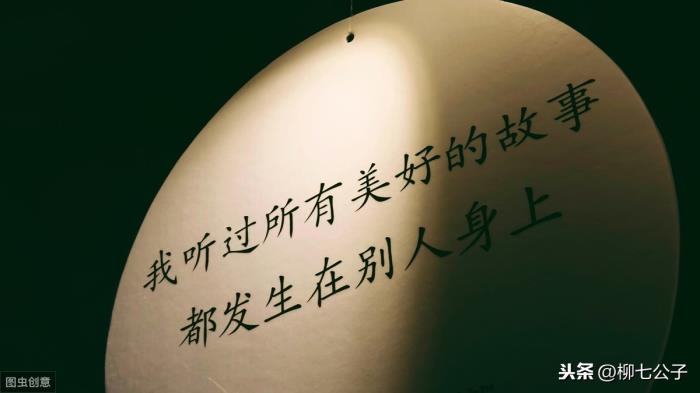 我听过所有美好的故事
都发生在别人身上
图虫创意
头条 @柳七公子